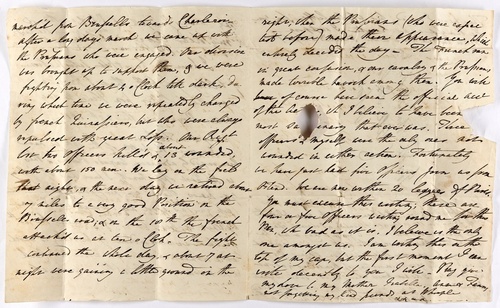 marched from Brussells towards Charleroi
after a long day's march we came up with
the Prussians who were engaged. Our division
was brought up to support them, & we were
fighting from about 2 o'Clock till dark, du
ring which time we were repeatedly charged
by french Cuirassiers, but who were always
repulsed with great loss. Our Regt
lost six Officers killed & about 13 wounded
with about 150 men. We lay on the field
that night, & the next day we retired about
miles to a very good Position on the
Brussells road, & on the 18th the french
attacked us at ten o'Clock. The fight
continued the whole day, & about 7 at
night were gaining a little ground on the
right, when the Prussians (who were expec
ted before) made their appearance, which
entirely decided the day. The French ran
in great confusion, & our cavalry & the Prussians
made terrible havock among them. You will
of course have seen the official acct
of the It I believe to have been
most sanguinary that ever was. Three
officers & myself were the only ones not
wounded in either action. Fortunately
we have just had five Officers join us from
We are now within 20 leagues of Paris.
You must excuse this writing; there are
four or five Officers writing round me for the
Pen. As bad as it is, I believe is the only
one amongst us. I am writing this on the
top of my cap, but the first moment I can
write decently to you I will. Pray give
my love to my Mother, Isabella, & Fanny,
not forgetting my kind friends at